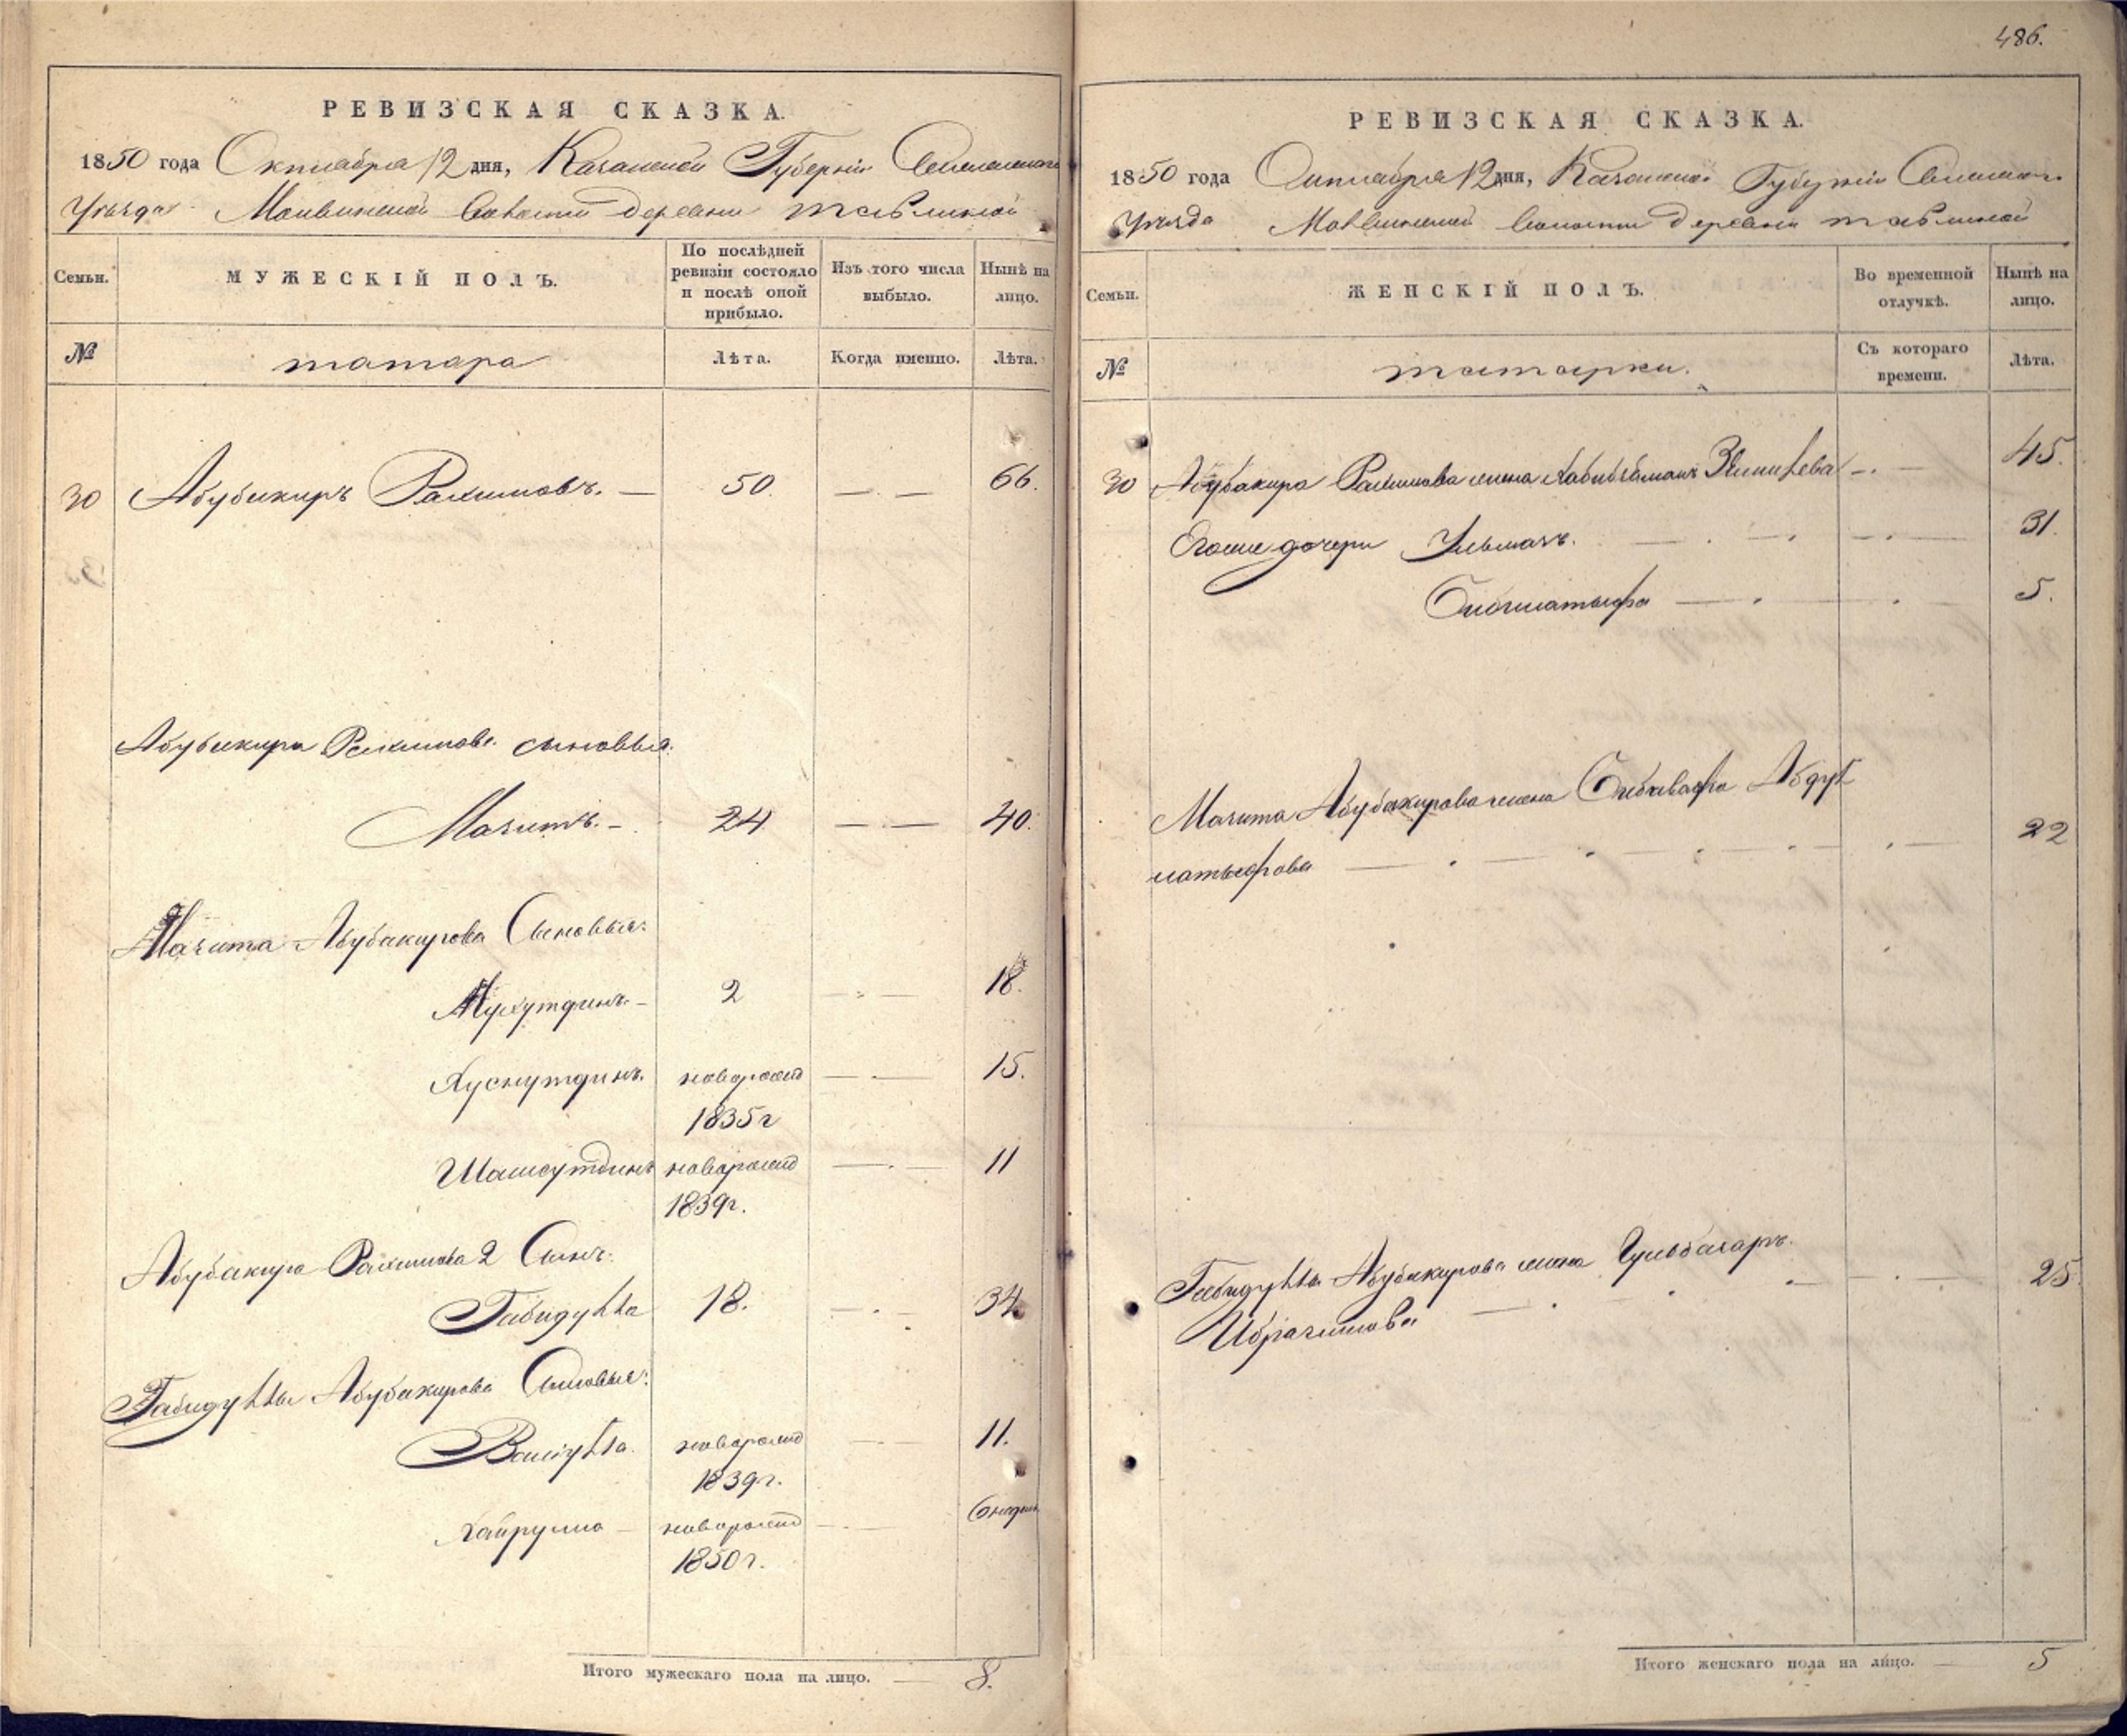 486.
РЕВИЗСКАЯ СКАЗКА.
1850 года Октиабра 12 дня, Казанской Губерніи
Уѣзда Волости деревни
Семьи.
МУЖЕСКІЙ ПОЛЪ.
По послѣдней ревизіи состояло и послѣ оной прибыло.
Изъ того числа выбыло.
Нынѣ на лицо.
№
татара
Лѣта.
Когда именно.
Лѣта.
30 Абубакиръ Рахимовъ. 50. 66.
Абубакира Рахимова сыновья:
Мазитъ. 24 40.
Мазита Абубакирова Сыновья:
Мухутдинъ 2 18.
Хуснутдинъ. новорожд 15.
1835 г
Шамсутдинъ новорожд 11
1839 г.
Абубакира Рахимова 2 Сынъ:
Габидулла 18. 34
Габидуллы Абубакирова Сыновья:
новорожд 11.
1839 г.
Хайрулла новорожд 6 недель
1850 г.
Итого мужескаго пола на лицо. 8.
РЕВИЗСКАЯ СКАЗКА.
1850 года Октиабра 12 дня, Казанской Губерніи
Уѣзда Волости деревни
Семьи.
ЖЕНСКІЙ ПОЛЪ.
Во временной отлучкѣ.
Нынѣ на лицо.
№
татарки.
Съ котораго времени.
Лѣта.
30 Абубакира Рахимова жена 45.
Егоже дочери 31.
5.
Мазита Абубакирова жена Абдул
латыфова 22
Габидуллы Абубакирова жена Гульбагаръ
Ибрагимова 25
Итого женскаго пола на лицо. 5